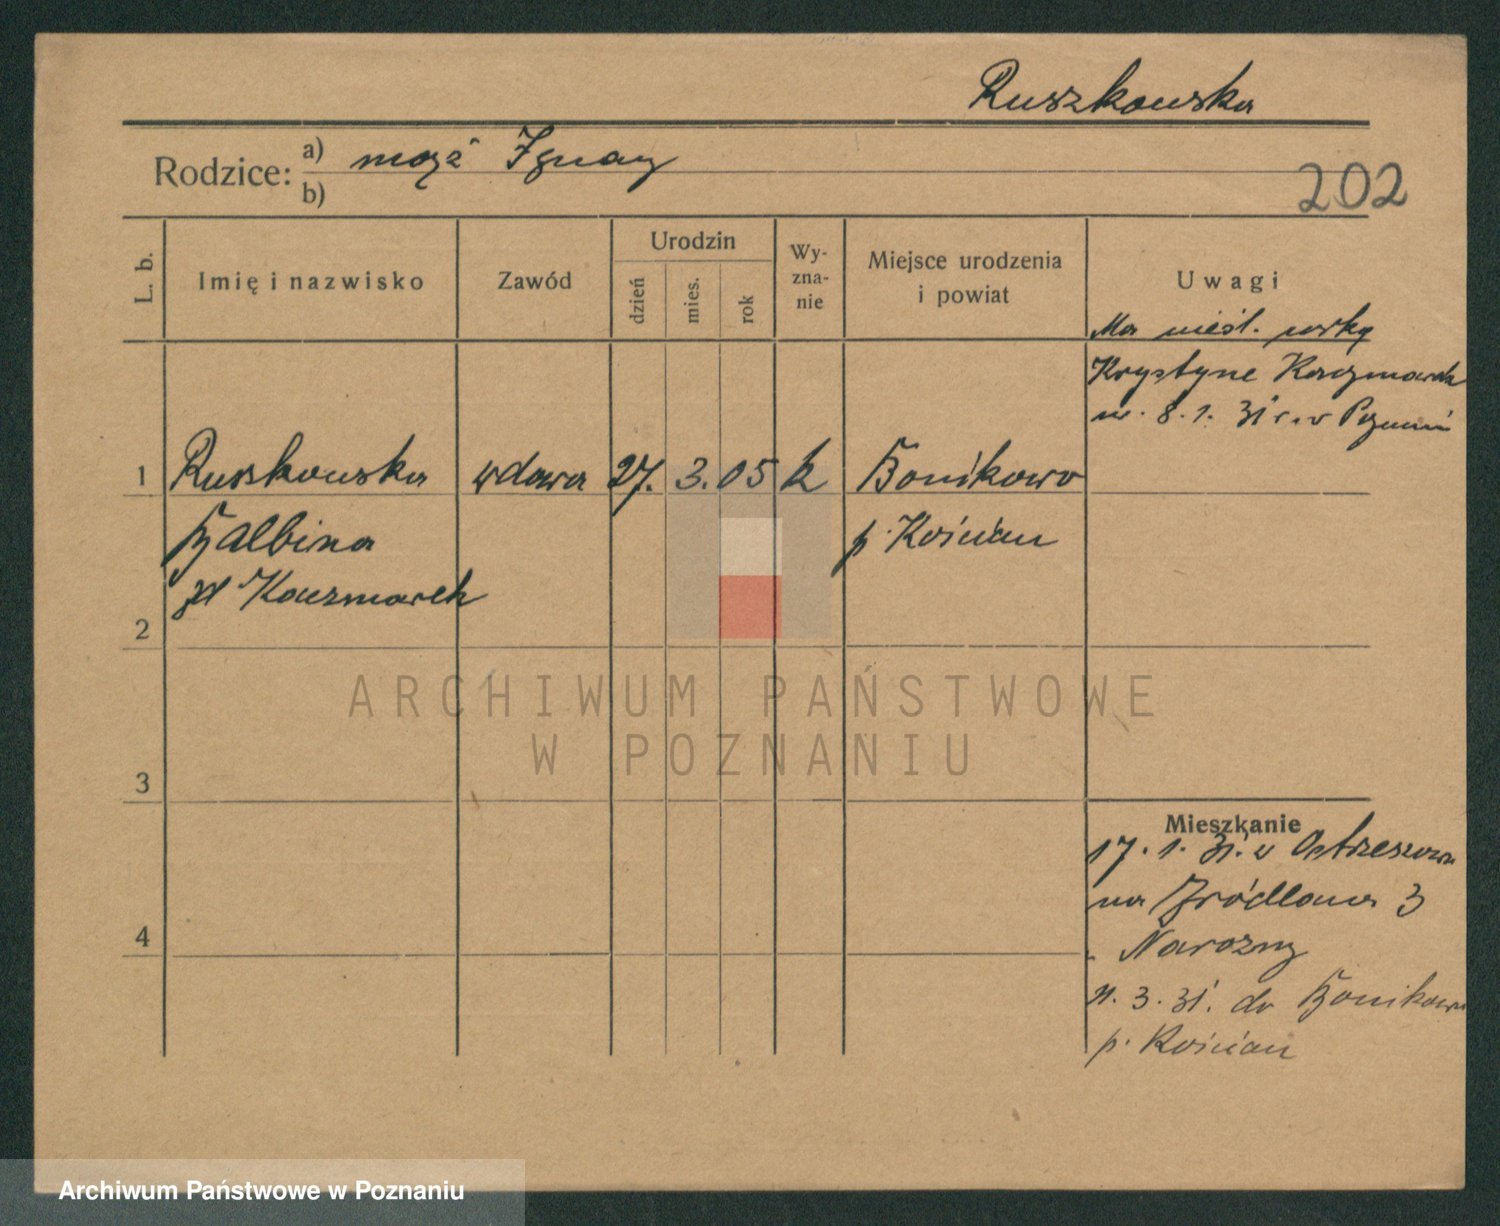 Ruszkowska
Rodzice: a) mąż Ignacy
b)
202
L. b.
Imię i nazwisko
Zawód
Urodzin
dzień
mies.
rok
Wy-
zna-
nie
Miejsce urodzenia
i powiat
Uwagi
Ma nieśl. córkę
Krystynę Kaczmarek
ur. 8.1.31 r. w Poznaniu
1 Ruszkowska wdowa 27. 3. 05 k Bonikowo
Balbina p. Kościan
zd Kaczmarek
2
3
4
Mieszkanie
17.1.31. w Ostrzeszowa
na Źródlana 3
Narożny
3.31. do Bonikowa
p. Kościan
ARCHIWUM PAŃSTWOWE
W POZNANIU
Archiwum Państwowe w Poznaniu